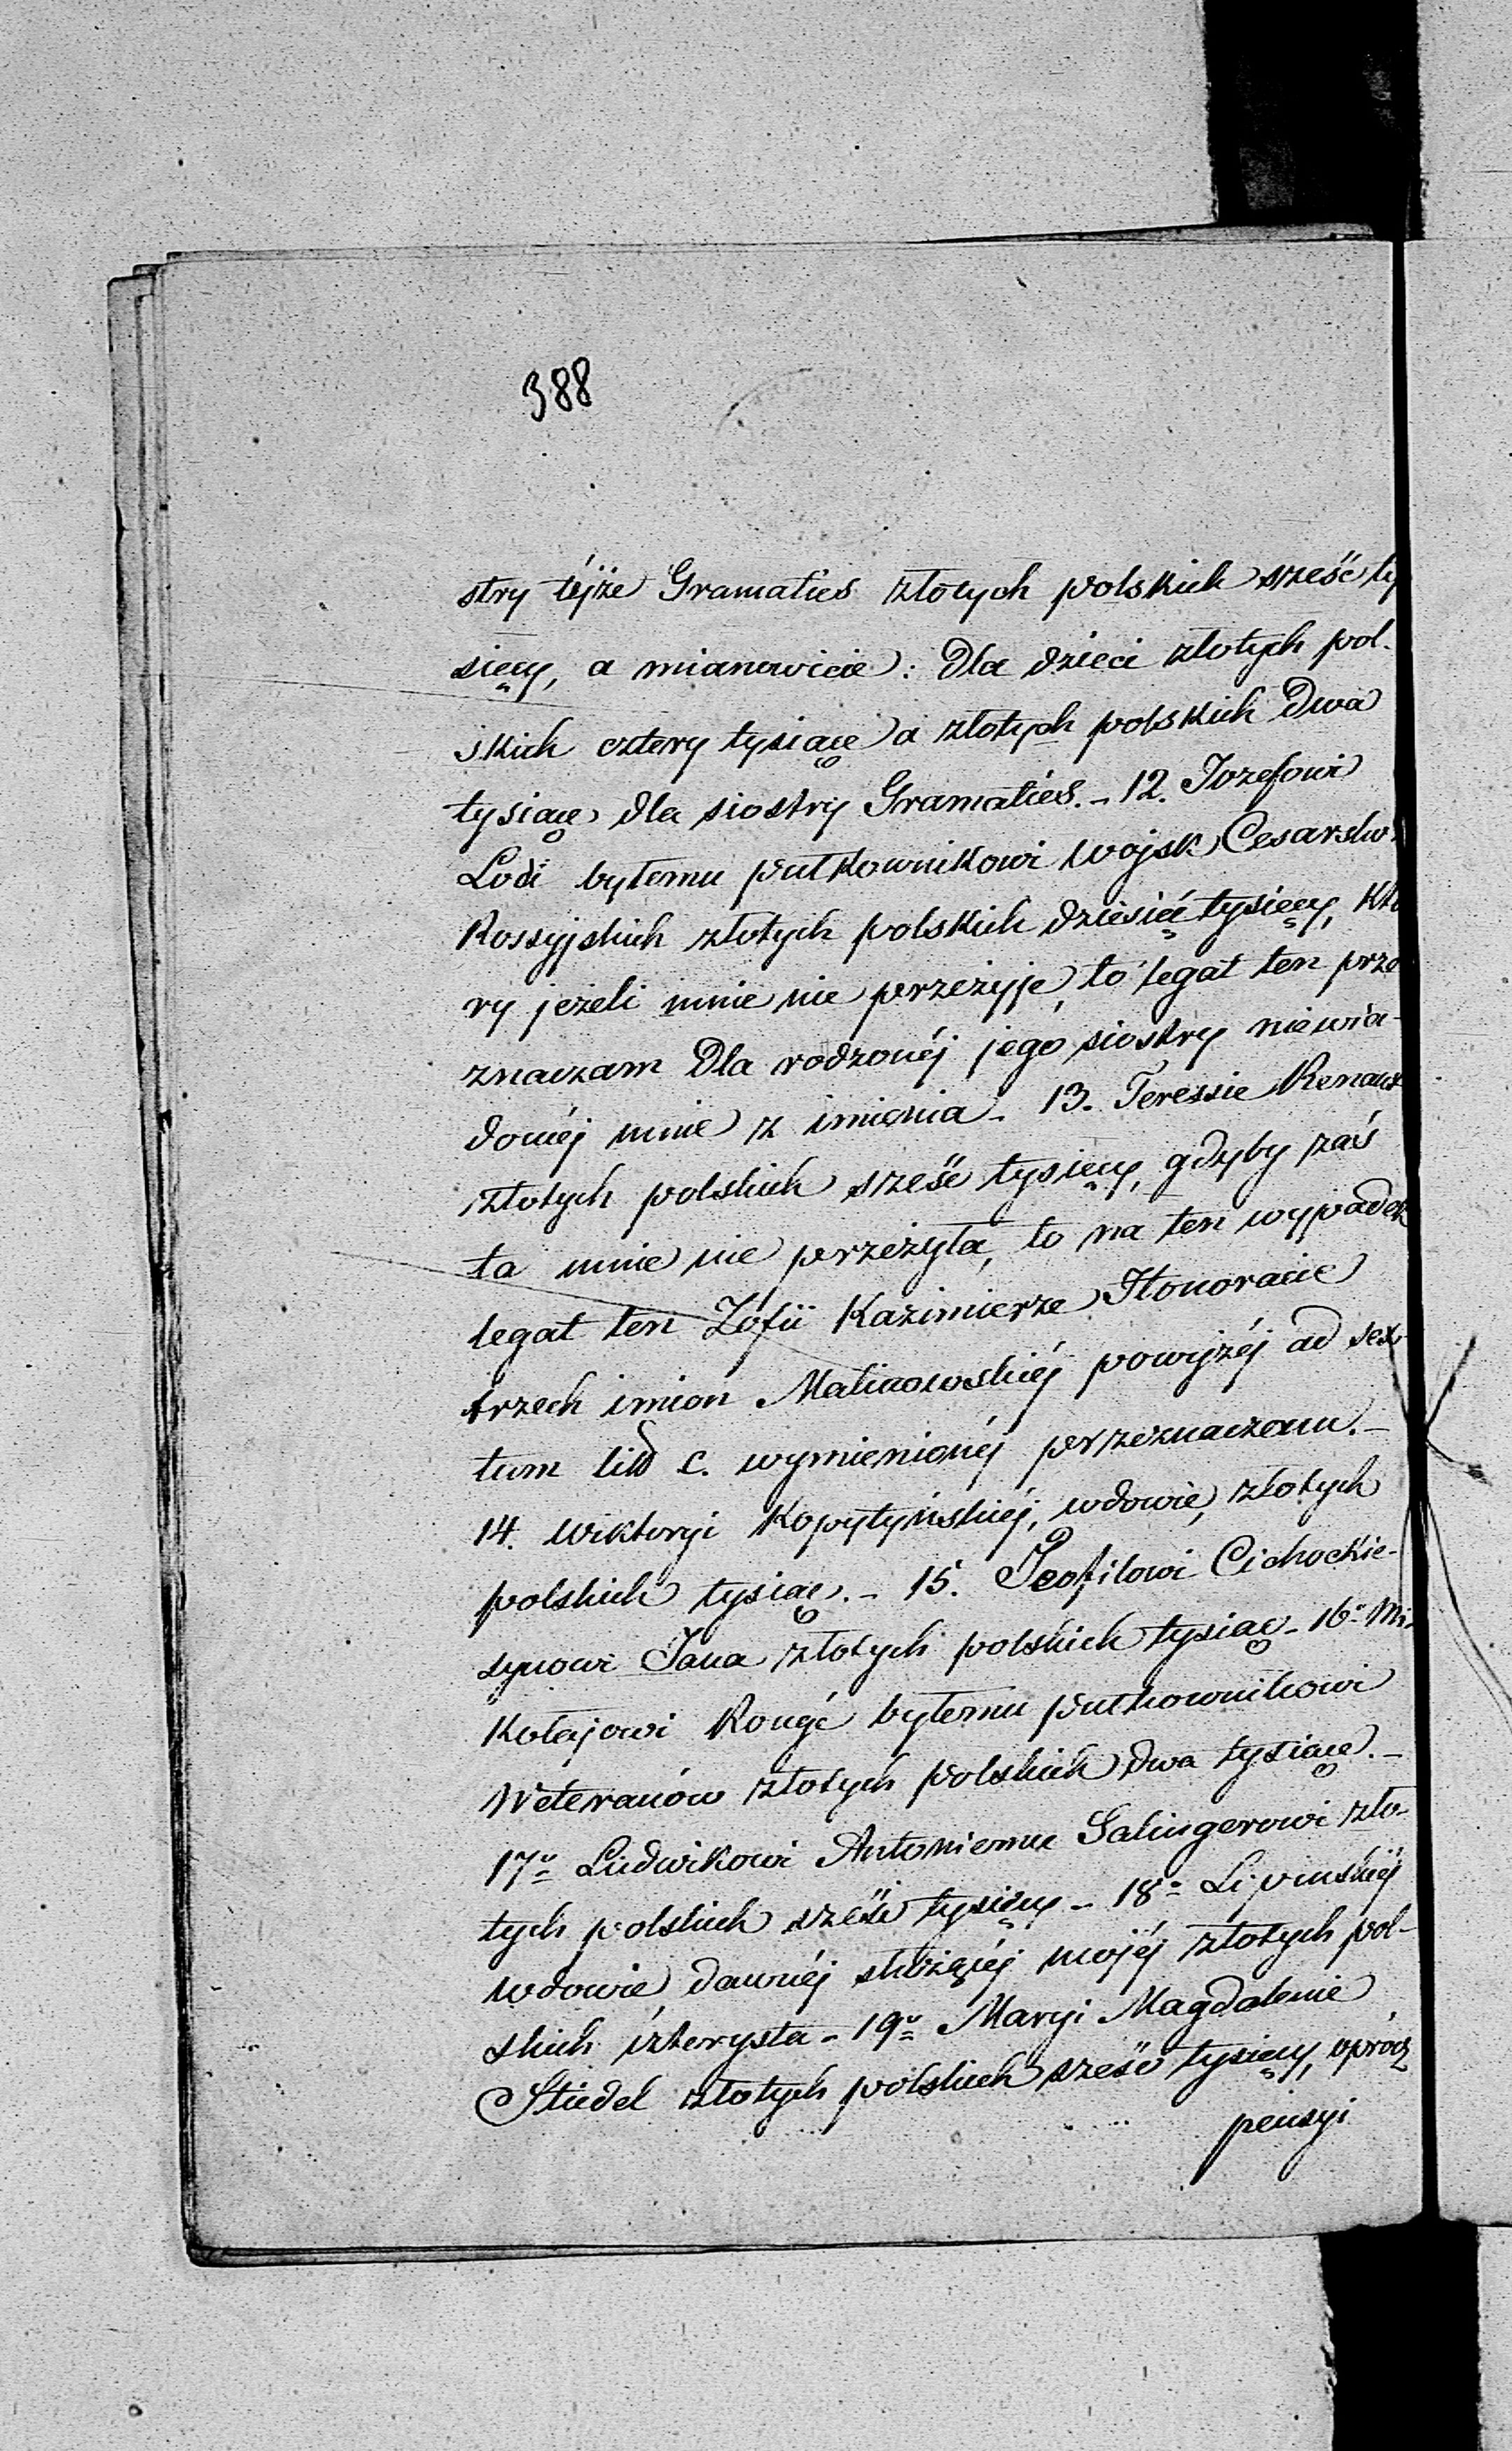 388
stry téjże Gramaties złotych polskich sześć ty
sięcy, a mianowicie: dla dzieci złotych pol-
skich cztery tysiące a złotych polskich dwa
tysiące dla siostry Gramatiés. – 12. Jozefowi
Lodi byłemu pułkownikowi wojsk Cesarstw
Rossyjskich złotych polskich dziesięć tysięcy, któ
ry jeżeli mnie nie przeżyje, to legat ten prze
znaczam dla rodzonéj jego siostry niewia-
doméj mnie z imienia – 13. Teressie Renaux
złotych polskich sześć tysięcy, gdyby zaś
ta mnie nie przeżyła, to na ten wypadek
legat ten Zófii Kazimierze Honoracie
trzech imion Malinowskiéj powyżéj ad sex-
tum lit c. wymienionéj przeznaczam. –
14. Wiktoryi Kopytyńskiéj, wdowie, złotych
polskich tysiąc. – 15. Teofilowi Cichockie-
synowi Jana złotych polskich tysiąc – 16° Mi-
kołajowi Rougé byłemu pułkownikowi
Weteranów złotych polskich dwa tysiące. –
17° Ludwikowi Antoniemu Salingerowi zło-
tych polskich sześć tysięcy – 18° Lipinskiéj
wdowie dawnéj służącéj mojéj złotych pol-
skich czterysta – 19° Maryi Magdalenie
Stiedel złotych polskich sześć tysięcy, oprócz
pensyi